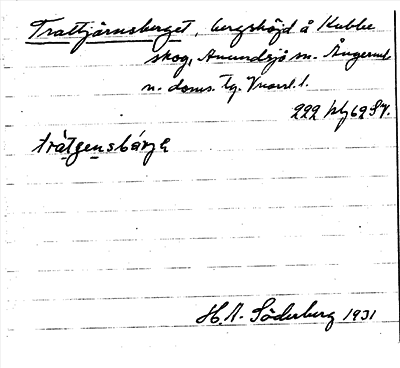 Trattjärnsberget, bergshöjd å Kubbe
skog, Anundsjö sn. Ångerml.
n. doms. tg.
222 km
trätgensbärja
H. A. Söderberg 1931